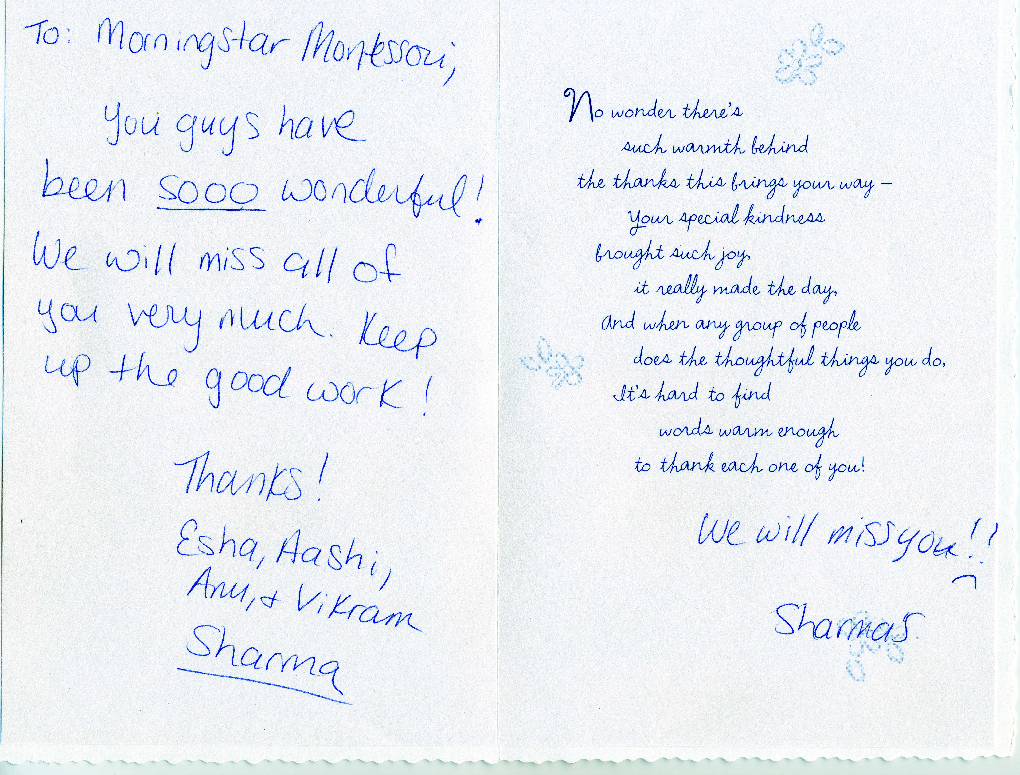 To: Morningstar Montessori,
You guys have
been sooo wonderful!
We will miss all of
you very much. Keep
up the good work!
Thanks!
Esha, Aashi,
Anu, & Vikram
Sharma
No wonder there's
such warmth behind
the thanks this brings your way –
Your special kindness
brought such joy,
it really made the day,
And when any group of people
does the thoughtful things you do,
It's hard to find
words warm enough
to thank each one of you!
We will miss you!!
Sharmas